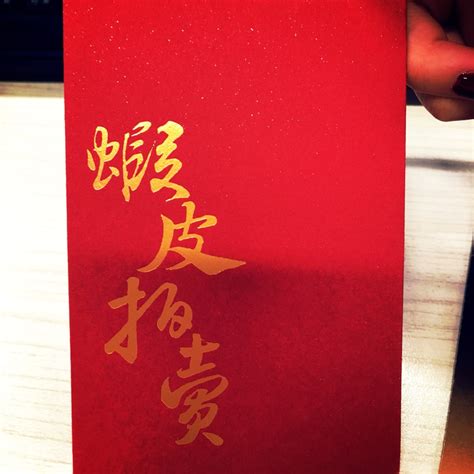 蝦皮拍賣